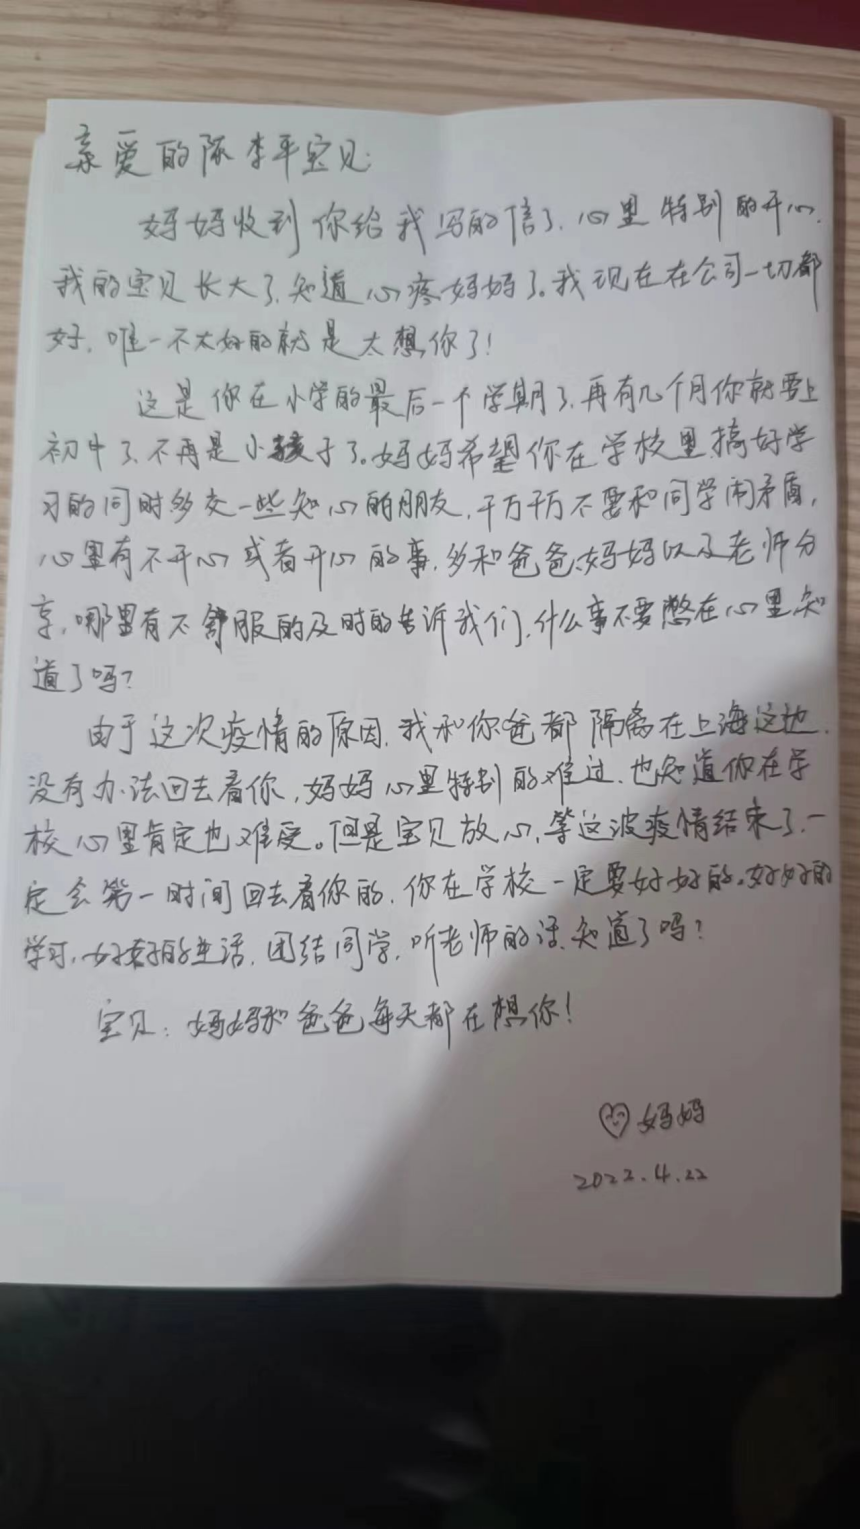 亲爱的陈李平宝贝:
妈妈收到你给我写的信了,心里特别的开心,
我的宝贝长大了,知道心疼妈妈了。我现在在公司一切都
好,唯一不太好的就是太想你了!
这是你在小学的最后一个学期了,再有几个月你就要上
初中了,不再是小孩子了。妈妈希望你在学校里搞好学
习的同时多交一些知心的朋友,千万千万不要和同学闹矛盾,
心里有不开心或者开心的事,多和爸爸、妈妈以及老师分
享,哪里有不舒服的及时的告诉我们,什么事不要憋在心里知
道了吗?
由于这次疫情的原因,我和你爸都隔离在上海这边,
没有办法回去看你,妈妈心里特别的难过,也知道你在学
校心里肯定也难受。但是宝贝放心,等这波疫情结束了,一
定会第一时间回去看你的,你在学校一定要好好的。好好的
学习,好好的生活,团结同学,听老师的话,知道了吗?
宝贝:妈妈和爸爸每天都在想你!
妈妈
2022.4.22